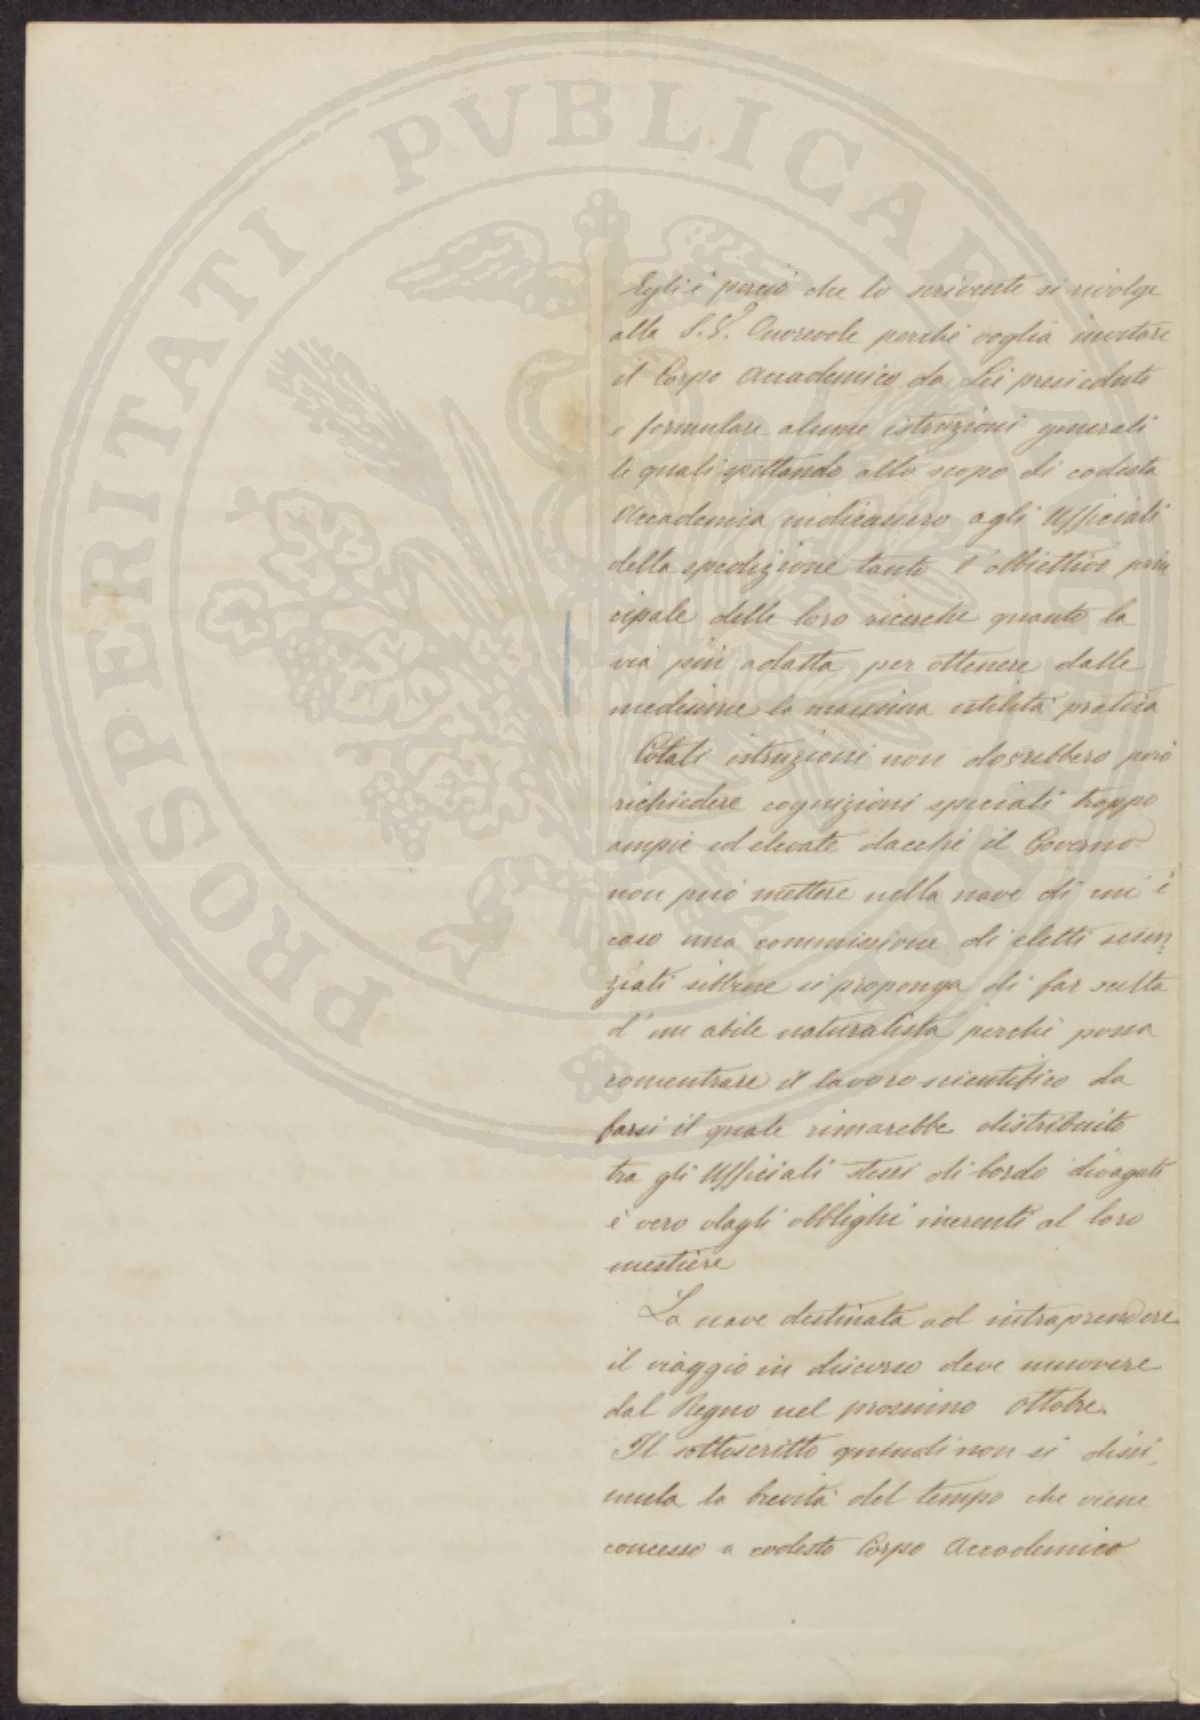 PROSPERITATI PUBLICAE AUGENDAE
Egli è perciò che lo scrivente si rivolge
alla S.V. Onorevole perchè voglia invitare
il Corpo Accademico da Lei presieduto
a formulare alcune istruzioni generali
le quali spettando allo scopo di codesta
Accademia indicassero agli Ufficiali
della spedizione tanto l'obbiettivo prin
cipale delle loro ricerche quanto la
via più adatta per ottenere dalle
medesime la massima utilità pratica
Cotali istruzioni non dovrebbero però
richiedere cognizioni speciali troppo
ampie ed elevate dacchè il Governo
non può mettere nella nave di cui è
caso una commissione di eletti scien
ziati sibbene si proponga di far scelta
d'un abile naturalista perchè possa
concentrare il lavoro scientifico da
farsi il quale rimarebbe distribuito
tra gli Ufficiali stessi di bordo divagati
è vero dagli obblighi inerenti al loro
mestiere
La nave destinata ad intraprendere
il viaggio in discorso deve muovere
dal Regno nel prossimo Ottobre.
Il sottoscritto quindi non si dissi
mula la brevità del tempo che viene
concesso a codesto Corpo Accademico